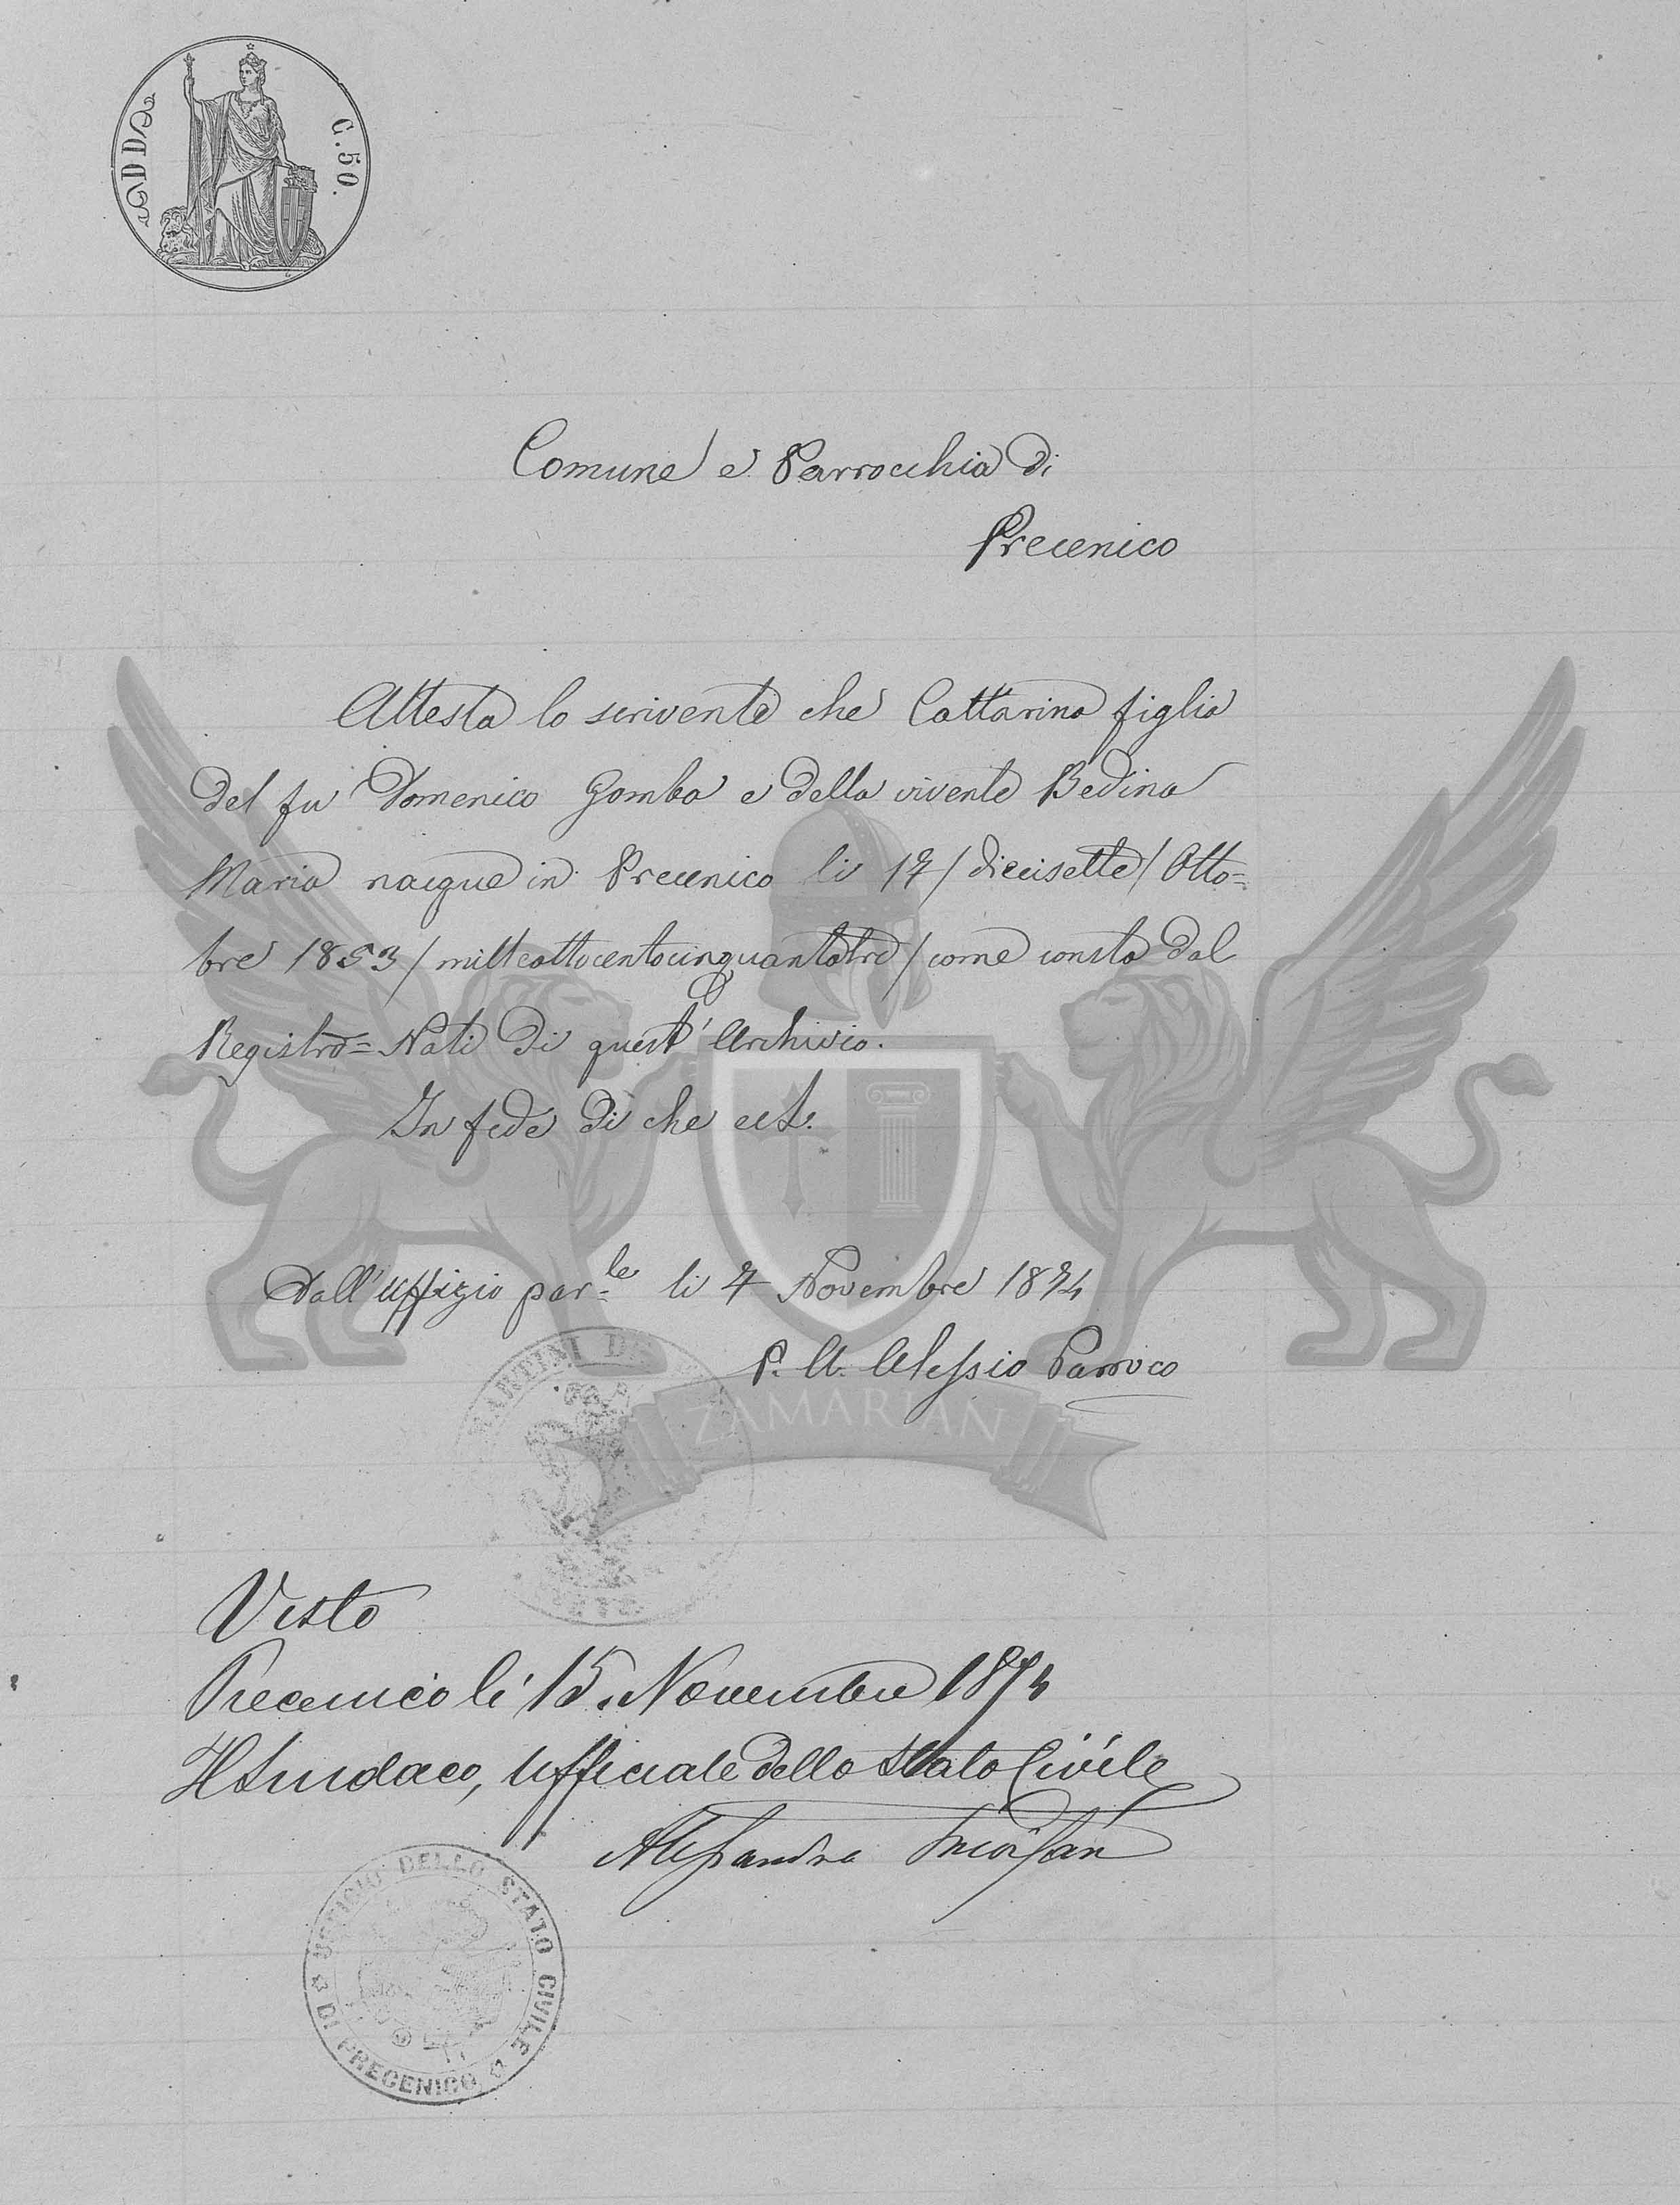 C. 50.
Comune e Parrocchia di
Precenico
Attesta lo scrivente che Cattarina figlia
del fu Domenico Gomba e della vivente Bedina
Maria nacque in Precenico li 17 / diecisette / Otto=
bre 1853 / milleottocentocinquantatre / come consta dal
Registro= Nati di quest' Archivio.
In fede di che ect.
Dall' Uffizio par.le li 7 Novembre 1874
P. A. Alessio Parroco
ZAMARIAN
Visto
Precenico li 15. Novembre 1874
Il Sindaco, Ufficiale dello Stato Civile
Alessandro
UFFICIO DELLO STATO CIVILE
DI PRECENICO